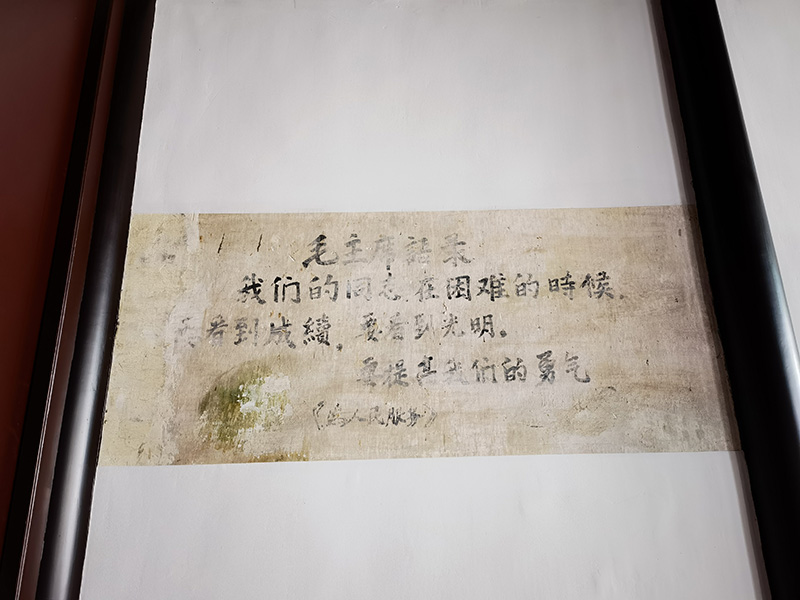 毛主席語录
我们的同志在困难的時候，
要看到成績，要看到光明。
要提高我们的勇气
《为人民服务》